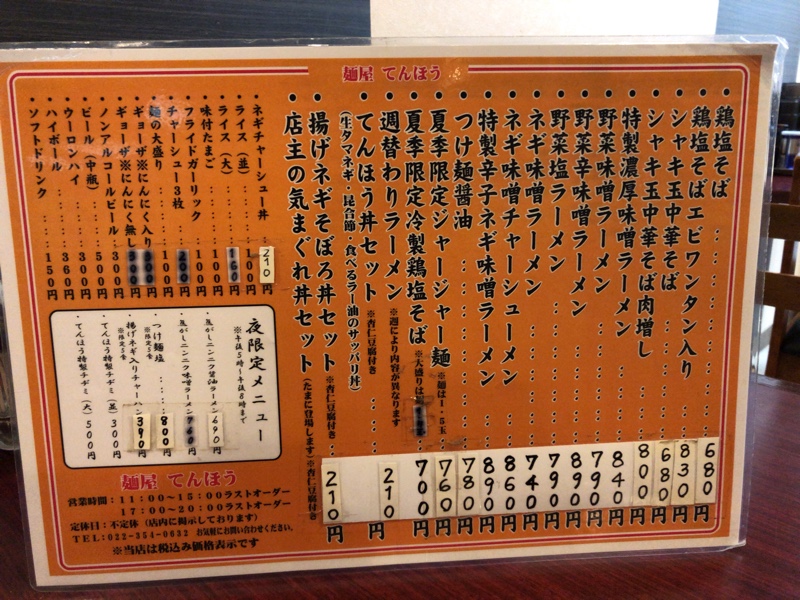 麺屋 てんほう
・鶏塩そば……680円
・鶏塩そばエビワンタン入り…830円
・シャキ玉中華そば……680円
・シャキ玉中華そば肉増し…800円
・特製濃厚味噌ラーメン……840円
・野菜味噌ラーメン……790円
・野菜辛味噌ラーメン……890円
・野菜塩ラーメン……790円
・ネギ味噌ラーメン……740円
・ネギ味噌チャーシューメン…860円
・特製辛子ネギ味噌ラーメン…890円
・つけ麺醤油……780円
・夏季限定ジャージャー麺 ※麺は1.5玉 760円
・夏季限定冷製鶏塩そば ※大盛りは 700円
・週替わりラーメン ※週により内容が異なります
・てんほう丼セット ※杏仁豆腐付き…210円
(生タマネギ・昆合節・食べるラー油のサッパリ丼)
・揚げネギそぼろ丼セット ※杏仁豆腐付き…210円
・店主の気まぐれ丼セット (たまに登場します)※杏仁豆腐付き
・ネギチャーシュー丼……210円
・ライス(並)……100円
・ライス(大)……160円
・味付たまご……100円
・フライドガーリック……100円
・チャーシュー3枚……円
・麺の大盛り……100円
・ギョーザ※にんにく入り 円
・ギョーザ※にんにく無し 300円
・ノンアルコールビール…300円
・ビール(中瓶)……500円
・ウーロンハイ……360円
・ハイボール……360円
・ソフトドリンク……150円
夜限定メニュー
※午後5時～午後8時まで
・焦がしニンニク醤油ラーメン 690円
・焦がしニンニク味噌ラーメン 760円
・つけ麺塩……800円
※限定5食
・揚げネギ入りチャーハン 390円
※限定5食
・てんほう特製チヂミ(並) 300円
・てんほう特製チヂミ(大) 500円
麺屋 てんほう
営業時間：11:00～15:00ラストオーダー
17:00～20:00ラストオーダー
定休日：不定休(店内に掲示しております)
TEL:022-354-0632 お気軽にお問い合わせください。
※当店は税込み価格表示です